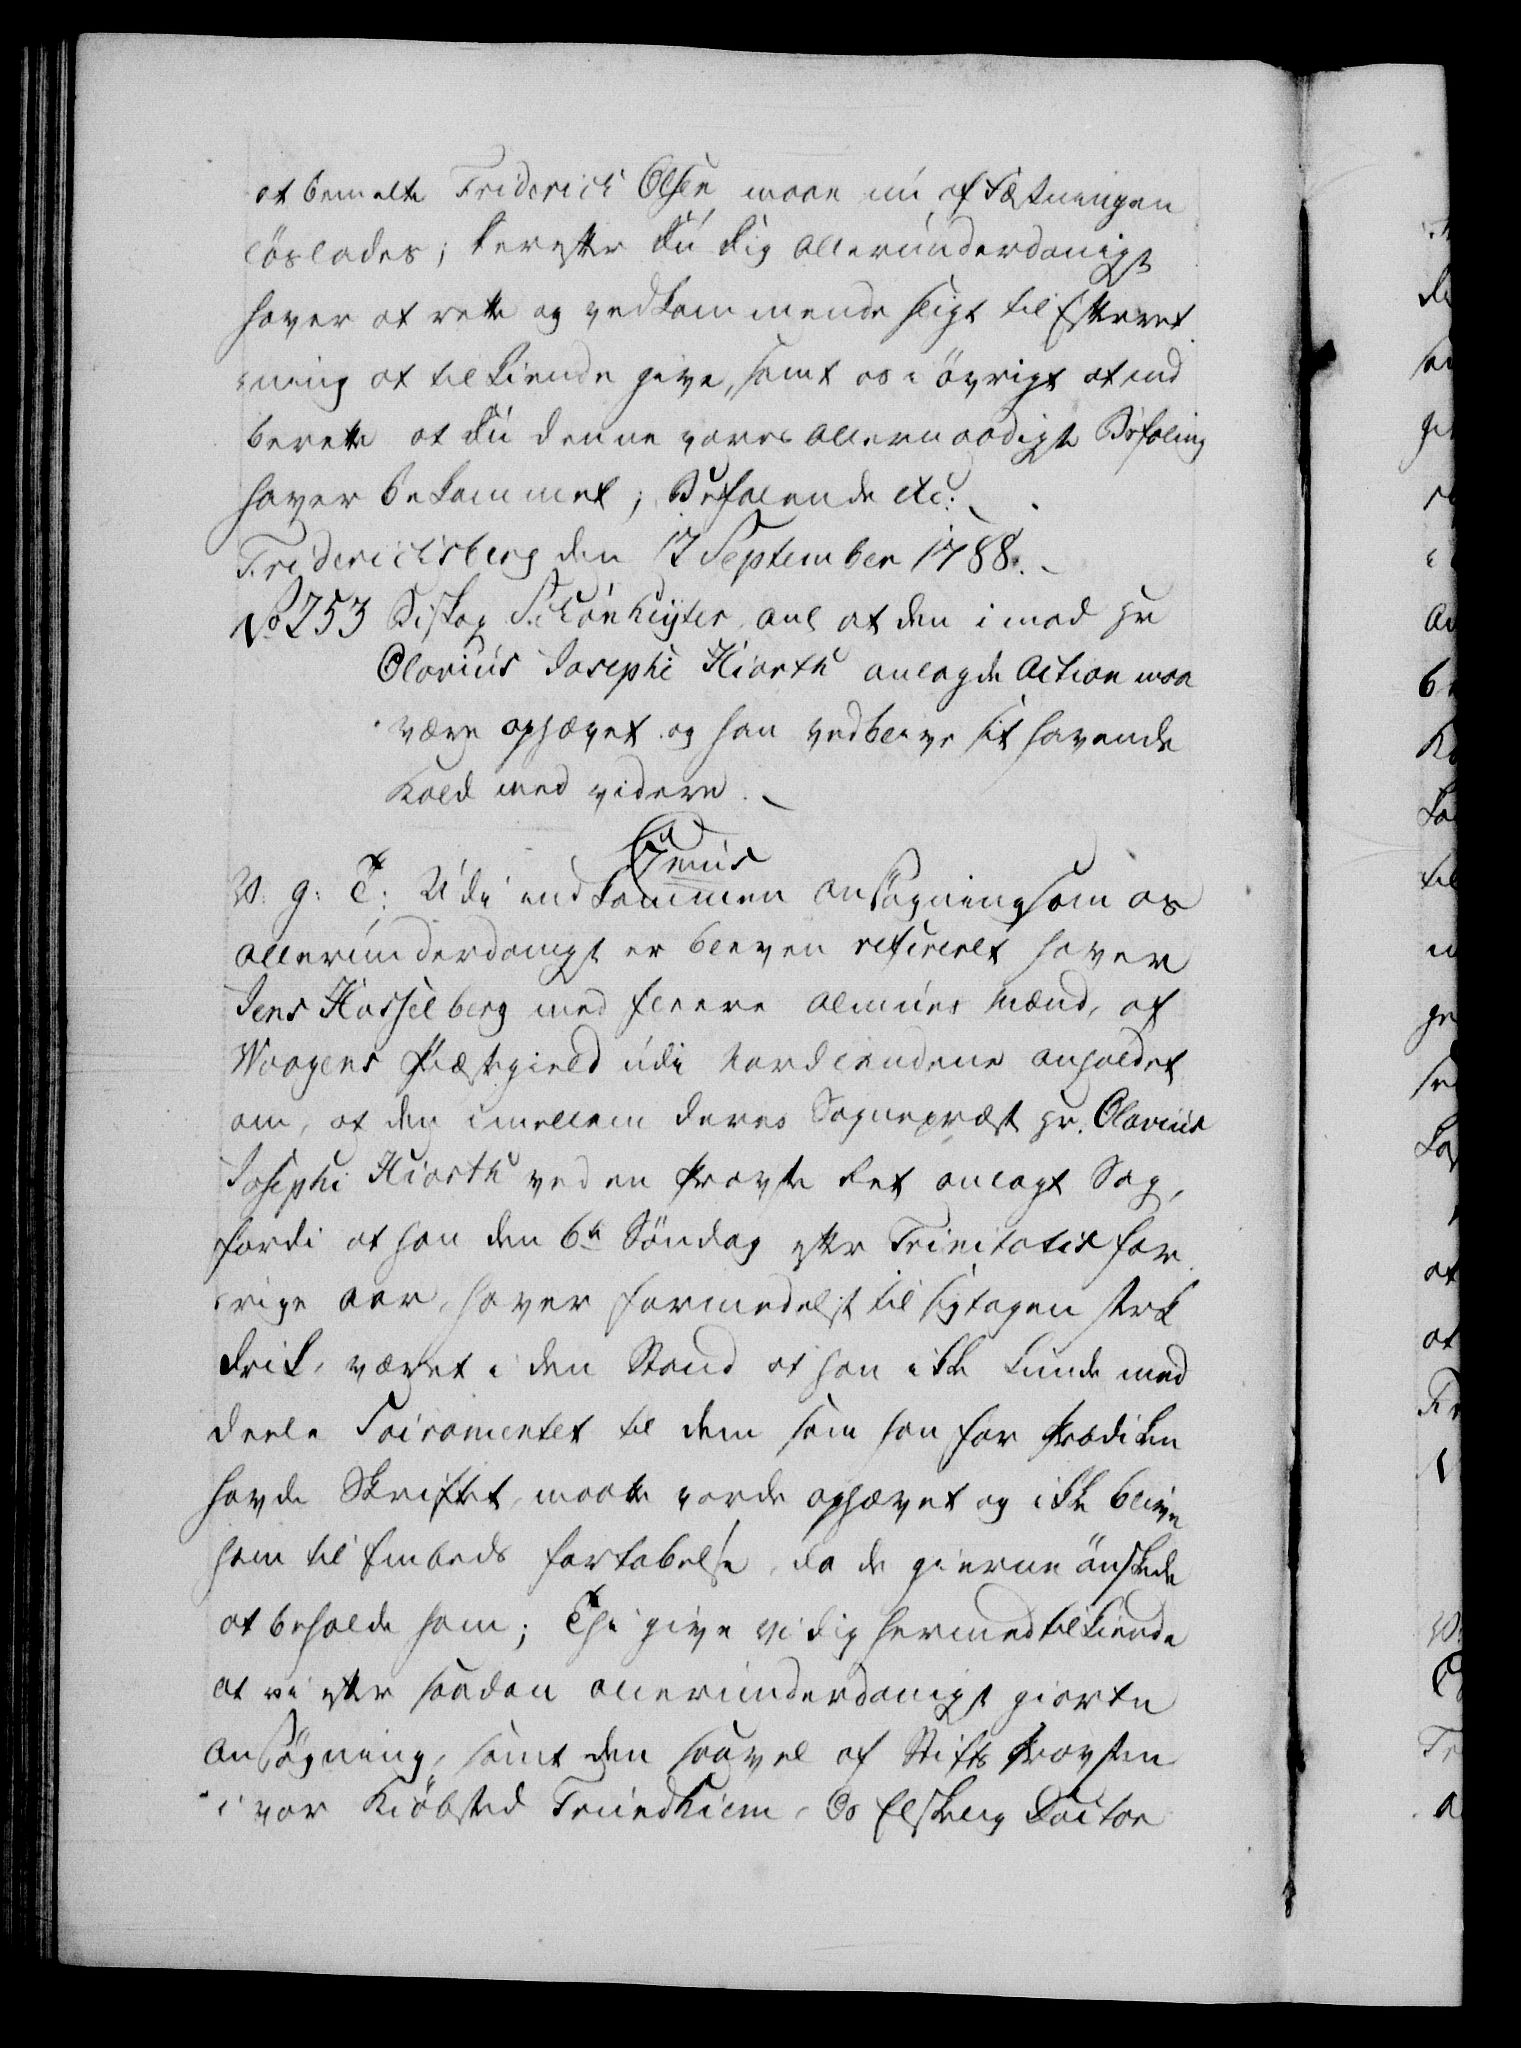 at bemelte Friderich Olsen maae nu af Fæstningen
löslades; derefter du dig allerunderdanigst
haver at rette og vedkommende sligt til Efterret
:ning at tilkiende give, samt os i övrigt at ind
berette at du denne vores allernaadigste Befaling
haver bekommet; Befalende etc:
Friderichsberg den 17 September 1788.
No 253 Biskop Schönheyter, anl at den imod Hr
Olavius Josephi Hiorth anlagde Action maa
være ophævet og han vedblive sit havende
Kald med videre.
Genus
V. g: T: Udi indkommen ansögning som os
allerunderdanigst er bleven refereret haver
Jens Hasselberg med fleere almues Mænd, af
Waagens Præstegield udi Nordlandene anholdet
om, at den imellem deres Sognepræst Hr. Olavius
Josephi Hiorth ved en Provste Ret anlagt Sag,
fordi at han den 6te Söndag efter Trinitatis for
:rige Aar, haver formedelst til sigtagen stærk
drik, været i den Stand at han ikke kunde med
deele Sacramentet til dem som han for Prædiken
havde Skriftet, maatte vorde ophævet og ikke blive
ham til Embeds fortabelse, da de gierne önskede
at beholde ham; Thi give vi dig hermed tilkiende
at vi efter saadan allerunderdanigst giorte
Ansögning, samt den saavel af Stifts Provsten
i vor Kiöbsted Trundhiem, Os Elskelig Doctor